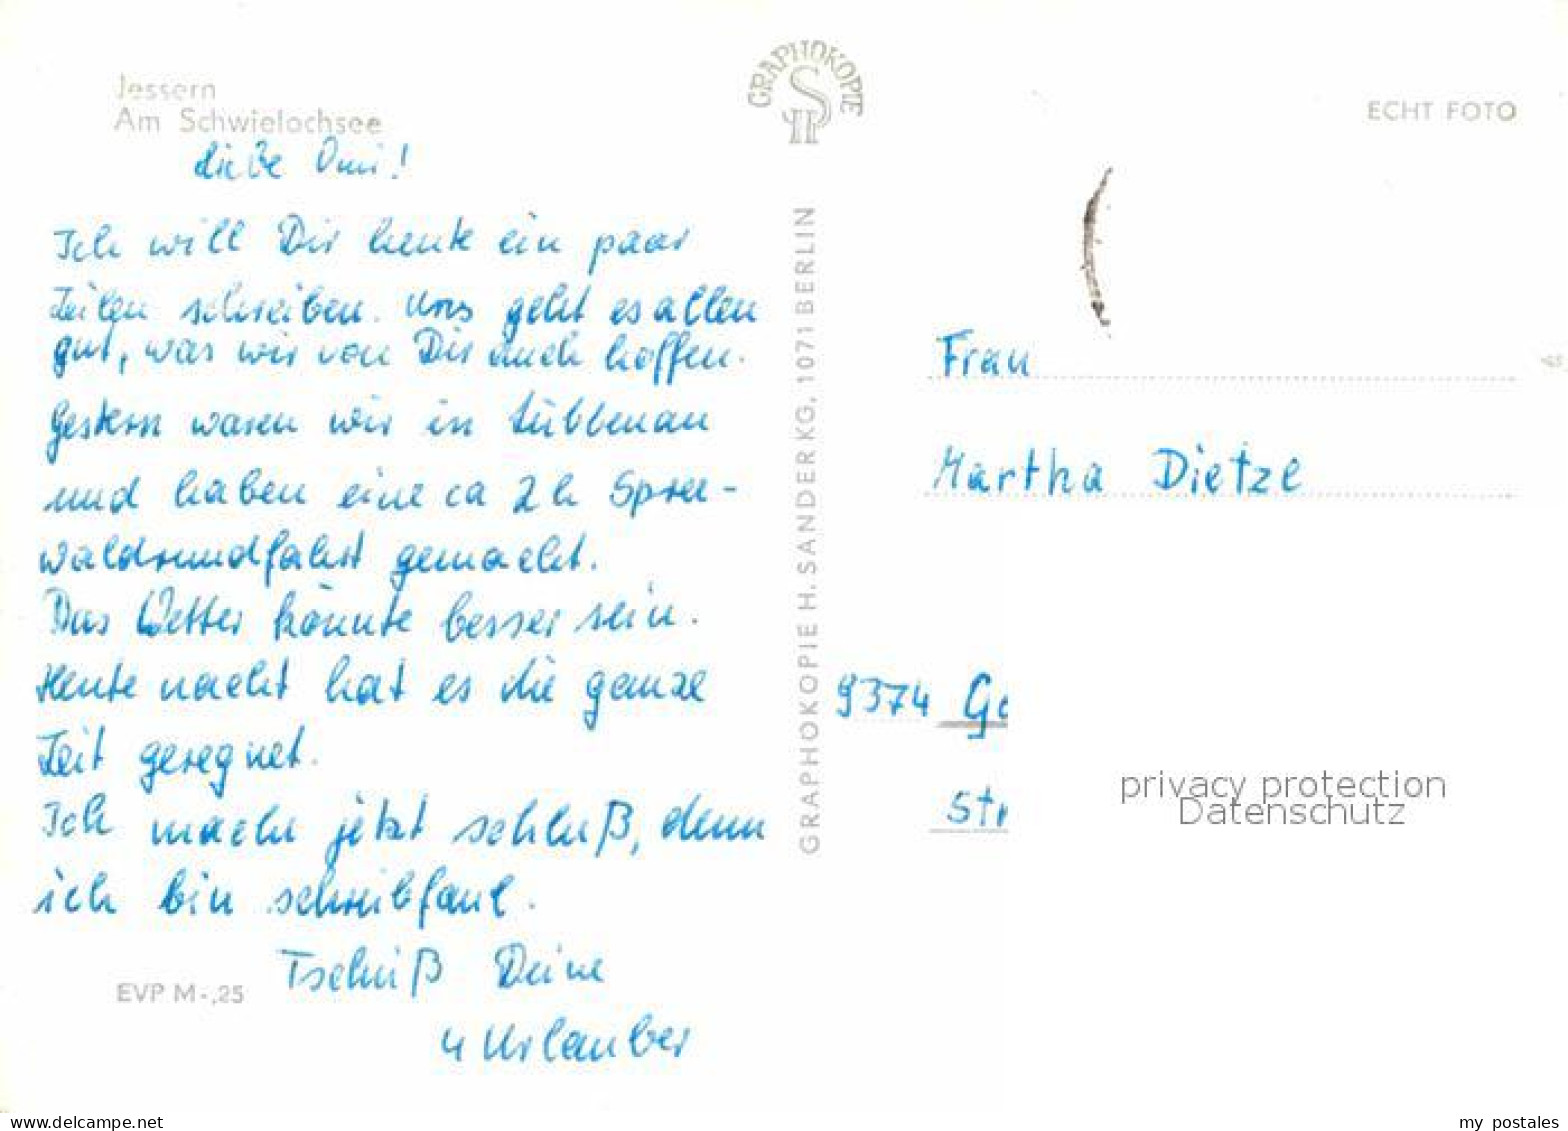 Jessern
Am Schwielochsee
Liebe Omi!
Ich will Dir heute ein paar
Zeilen schreiben. Uns geht es allen
gut, was wir von Dir auch hoffen.
Gestern waren wir in Lübbenau
und haben eine ca 2 h Spree-
waldrundfahrt gemacht.
Das Wetter könnte besser sein.
Heute nacht hat es die ganze
Zeit geregnet.
Ich mache jetzt schluß, denn
ich bin schreibfaul.
Tschüß Deine
4 Urlauber
EVP M-,25
GRAPHOKOPIE
HS
GRAPHOKOPIE H. SANDER KG, 1071 BERLIN
ECHT FOTO
Frau
Martha Dietze
9374 Ge
Str
privacy protection
Datenschutz
delcampe.net
my_postales